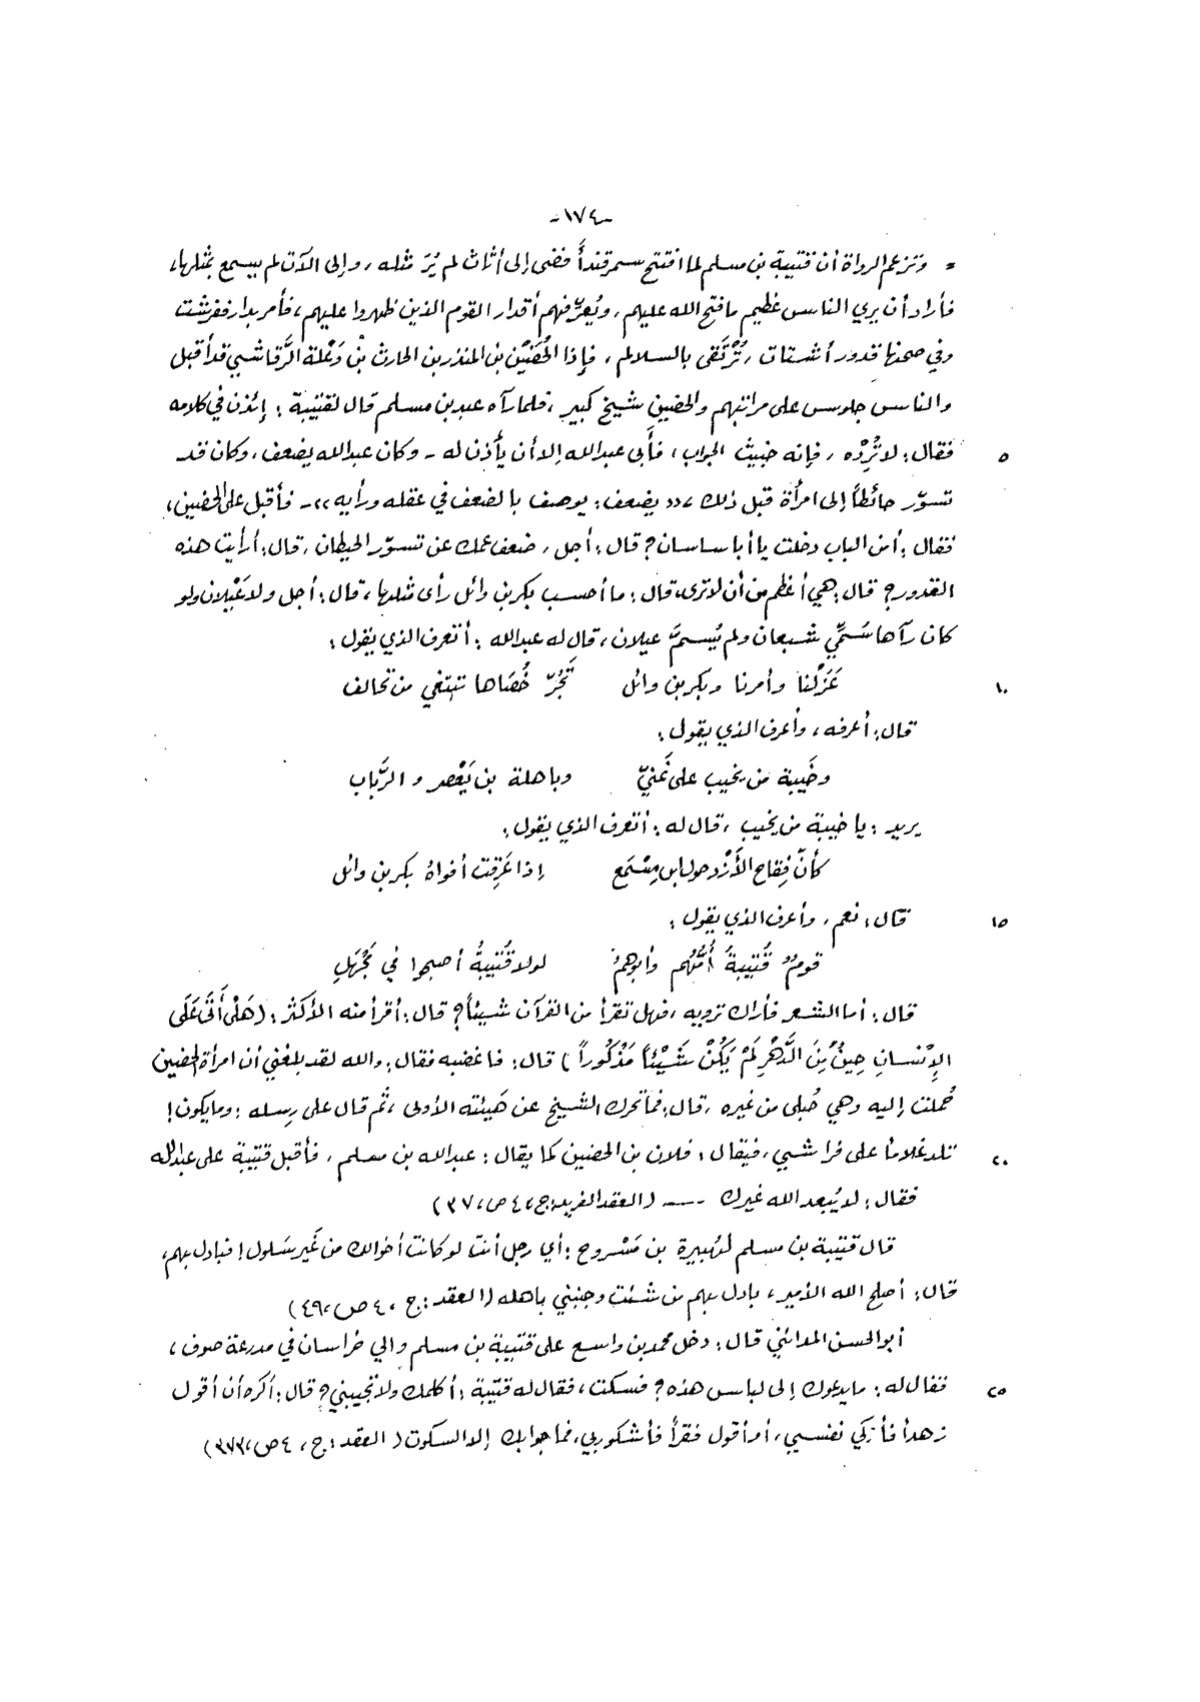 -١٧٤-
= وتزعم الرواة أن قتيبة بن مسلم لما افتتح سمرقندأَ فضى إلى أثاث لم يُرَ مثله، وإلى آلات لم يسمع بمثلها،
فأراد أن يري الناس عظيم ما فتح الله عليهم، ويُعرّفهم أقدار القوم الذين ظهروا عليهم، فأمر بدار ففرشت
وفي صحنها قدور أشتات، تُرْتَقى بالسلالم، فإذا الحُضَيْن بن المنذر بن الحارث بْن وَعْلة الرَّقاشي قد أقبل
والناس جلوس على مراتبهم والحضين شيخ كبير، فلما رآه عبد بن مسلم قال لقتيبة : إئذن في كلامه
٥ فقال: لا تُرِدْه، فإنه خبيث الجواب، فأَبى عبد الله إلا أن يأذن له - وكان عبد الله يضعف، وكان قد
تسوّر حائطاً إلى امرأة قبل ذلك، «« يضعف: يوصف بالضعف في عقله ورأيه »- فأقبل على الحضين،
فقال: أمن الباب دخلت يا أبا ساسان؟ قال: أجل، ضعف عمك عن تسوّر الحيطان، قال: أرأيت هذه
القدور؟ قال: هي أعظم من أن لا ترى، قال: ما أحسب بكر بن وائل رأى مثلها، قال: أجل ولا عَيْلان ولو
كان رآها سَمّي شبعان ولم يُسمَّ عيلان، قال له عبد الله : أتعرف الذي يقول:
١٠ عَزَلْنا وأمرنا وبكر بن وائل تَجُرّ خُصَاها تبتغي من تحالف
قال: أعرفه، وأعرف الذي يقول:
وخَيبة من يخيب على غَنيّ وباهلة بن يَعْصر والرَّباب
يريد : يا خيبة من يخيب، قال له : أتعرف الذي يقول:
كأنّ فِقاح الأَزْد حول ابن مِسْمَع إذا عَرِقت أفواهُ بكر بن وائل
١٥ قال: نعم، وأعرف الذي يقول:
قومٌ قُتيبةُ أُمُّهم وأبوهمُ لولا قُتيبةُ أصبحوا في مَجْهَلِ
قال: أما الشعر فأراك ترويه، فهل تقرأ من القرآن شيئاً؟ قال: أقرأ منه الأكثر: (هَلْ أَتَى عَلَى
الإِنْسانِ حِينٌ مِنَ الدَّهْرِ لَمْ يَكُنْ شَيْئاً مَذْكُوراً) قال: فأغضبه فقال: والله لقد بلغني أن امرأة الحضين
حُملت إليه وهي حُبلى من غيره، قال: فما تحرك الشيخ عن هَيئته الأولى، ثم قال على رِسله : وما يكون!
٢٠ تلد غلاماً على فراشي، فيقال: فلان بن الحضين كما يقال: عبد الله بن مسلم، فأقبل قتيبة على عبد الله
فقال: لا يُبعد الله غيرك --- (العقد الفريد: ج، ٤ ص، ٣٧)
قال قتيبة بن مسلم لهُبيرة بن مَسْروح : أي رجل أنت لو كانت أخوالك من غَير سَلول! فبادل بهم،
قال: أصلح الله الأمير، بادل بهم من شئت وجنبني باهله (العقد: ج، ٤ ص، ٤٩)
أبو الحسن المدائني قال: دخل محمد بن واسع على قتيبة بن مسلم والي خراسان في مدرعة صوف،
٢٥ فقال له : ما يدعوك إلى لباس هذه؟ فسكت، فقال له قتيبة : أكلمك ولا تجيبني؟ قال: أكره أن أقول
زهداً فأزكي نفسي، أو أقول فقرأً فأشكو ربي، فما جوابك إلا السكوت (العقد: ج، ٤ ص، ٣٧٣)